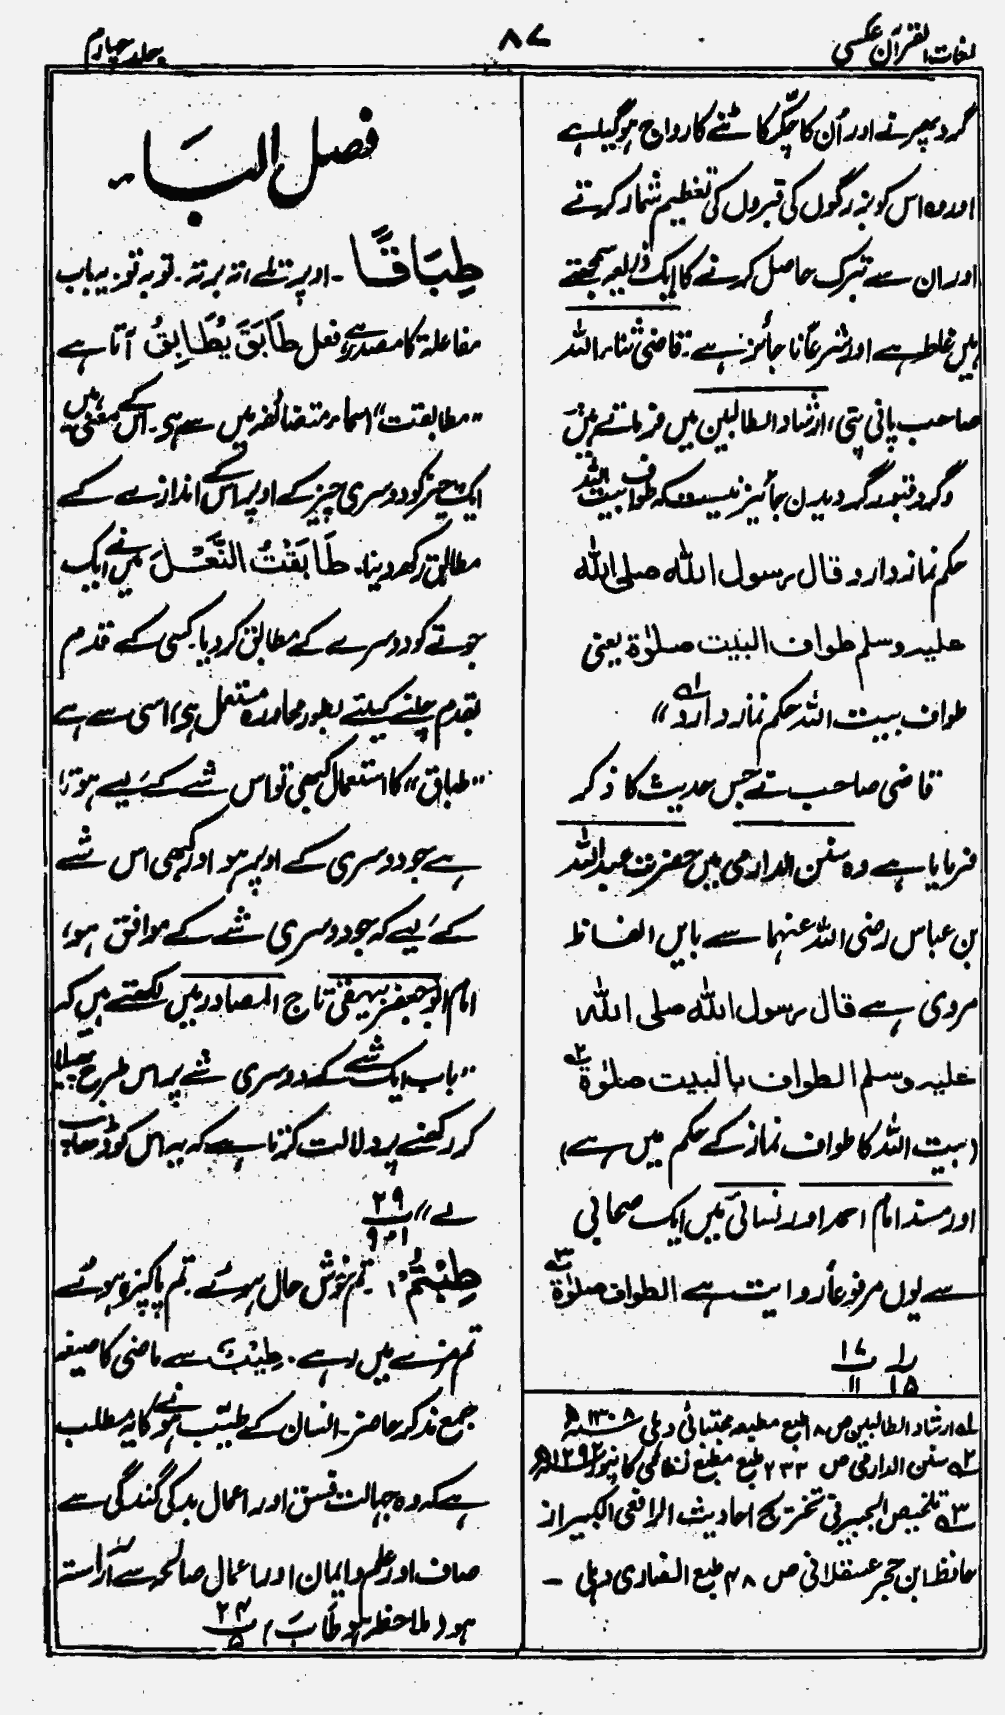 لغات القرآن عکسی
۸۷
جلد چہارم
گرد پھرنے اور اُن کا چکر کاٹنے کا رواج ہو گیا ہے
اور وہ اس کو بزرگوں کی قبروں کی تعظیم شمار کرتے
اور ان سے تبرک حاصل کرنے کا ایک ذریعہ سمجھتے
ہیں غلط ہے اور شرعاً ناجائز ہے۔ قاضی ثناء اللہ
صاحب پانی پتی، ارشاد الطالبین میں فرماتے ہیں
وگرد قبور گردیدن جائیز نیست کہ طواف بیت اللہ
حکم نماز دارد قال رسول اللہ صلی اللہ
علیہ وسلم طواف البیت صلوٰۃ یعنی
طواف بیت اللہ حکم نماز دارد لہ"
قاضی صاحب نے جس حدیث کا ذکر
فرمایا ہے وہ سنن الدارمی میں حضرت عبد اللہ
بن عباس رضی اللہ عنہما سے بایں الفاظ
مروی ہے قال رسول اللہ صلی اللہ
علیہ وسلم الطواف بالبیت صلوٰۃ ۲ہ
(بیت اللہ کا طواف نماز کے حکم میں ہے)
اور مسند امام احمد اور نسائی میں ایک صحابی
سے یوں مرفوعاً روایت ہے الطواف صلوٰۃ ۳ہ
را ۱۵ ت ۱۷ ۱۱
لہ ارشاد الطالبین ص ۱۸ طبع مطبعہ مجتبائی دہلی سنہ ۱۳۰۸ھ
۲ہ سنن الدارمی ص ۲۳۳ طبع مطبع نظامی کانپور سنہ ۱۲۹۲ھ
۳ہ تلخیص الحبیر فی تخریج احادیث الرافعی الکبیر از
حافظ ابن حجر عسقلانی ص ۴۸ طبع انصاری دہلی ۔
فصل الباء
طِبَاقًا ۔ اوپر تلے، تہ بر تہ۔ توبر تو۔ یہ باب
مفاعلۃ کا مصدر ہے فعل طَابَقَ یُطَابِقُ آتا ہے
"مطابقت" اسماء متضائفہ میں سے ہی۔ اس کے معنی ہیں
ایک چیز کو دوسری چیز کے اوپر اس کے اندازے کے
مطابق رکھ دینا۔ طَابَقْتُ النَّعْلَ میں نے ایک
جوتے کو دوسرے کے مطابق کر دیا۔ کسی کے قدم
بقدم چلنے کیلئے بطور محاورہ مستعمل ہی، اسی سے ہے
"طباق" کا استعمال کبھی تو اس شے کے لیے ہوتا
ہے جو دوسری کے اوپر ہو اور کبھی اس شے
کے لیے کہ جو دوسری شے کے موافق ہو،
امام ابو جعفر بیہقی تاج المصادر میں لکھتے ہیں کہ
"باب ایک شے کے دوسری شے پر اس طرح پھیلا
کر رکھنے پر دلالت کرتا ہے کہ یہ اس کو ڈھانپ
لے" ۲۹ ۱ و ۹
طِبْتُمْ، تم خوش حال ہوئے۔ تم پاکیزہ ہوئے
تم مزے میں رہے۔ طِیْبٌ سے ماضی کا صیغہ
جمع مذکر حاضر۔ انسان کے طیّب ہونے کا یہ مطلب
ہے کہ وہ جہالت فسق اور اعمال بد کی گندگی سے
صاف اور علم و ایمان اور اعمال صالحہ سے آراستہ
ہو (ملاحظہ ہو طَابَ) ۲۴ ۵